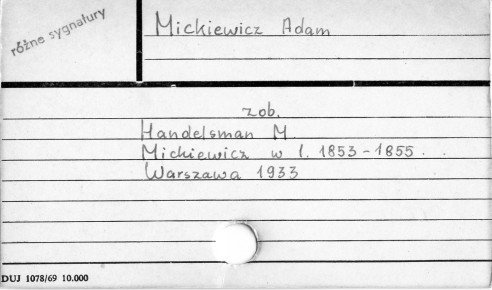 różne sygnatury
Mickiewicz Adam
zob.
Handelsman M.
Mickiewicz w l. 1853-1855.
Warszawa 1933
DUJ 1078/69 10.000